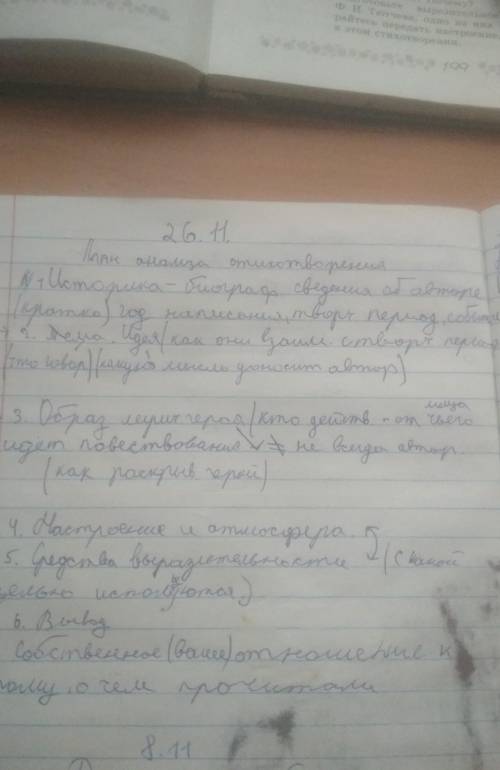 Ф. И. Тютчева, одно из них
райтесь передать настроение
в этом стихотворении.
199
26.11.
План анализа стихотворения
1. Историка-биограф. сведения об авторе
(кратко) год написания, творч период, событ
2. Тема. Идея (как они взаим. с творч период
(что говор) (какую мысль доносит автор)
3. Образ лирич героя (кто действ - от чьего
лица
идет повествование ≠ не всегда автор
(как раскрыв герой)
4. Настроение и атмосфера.
5. Средства выразительности (с какой
целью используются)
6. Вывод
Собственное (ваше) отношение к
тому, о чем прочитали
8.11